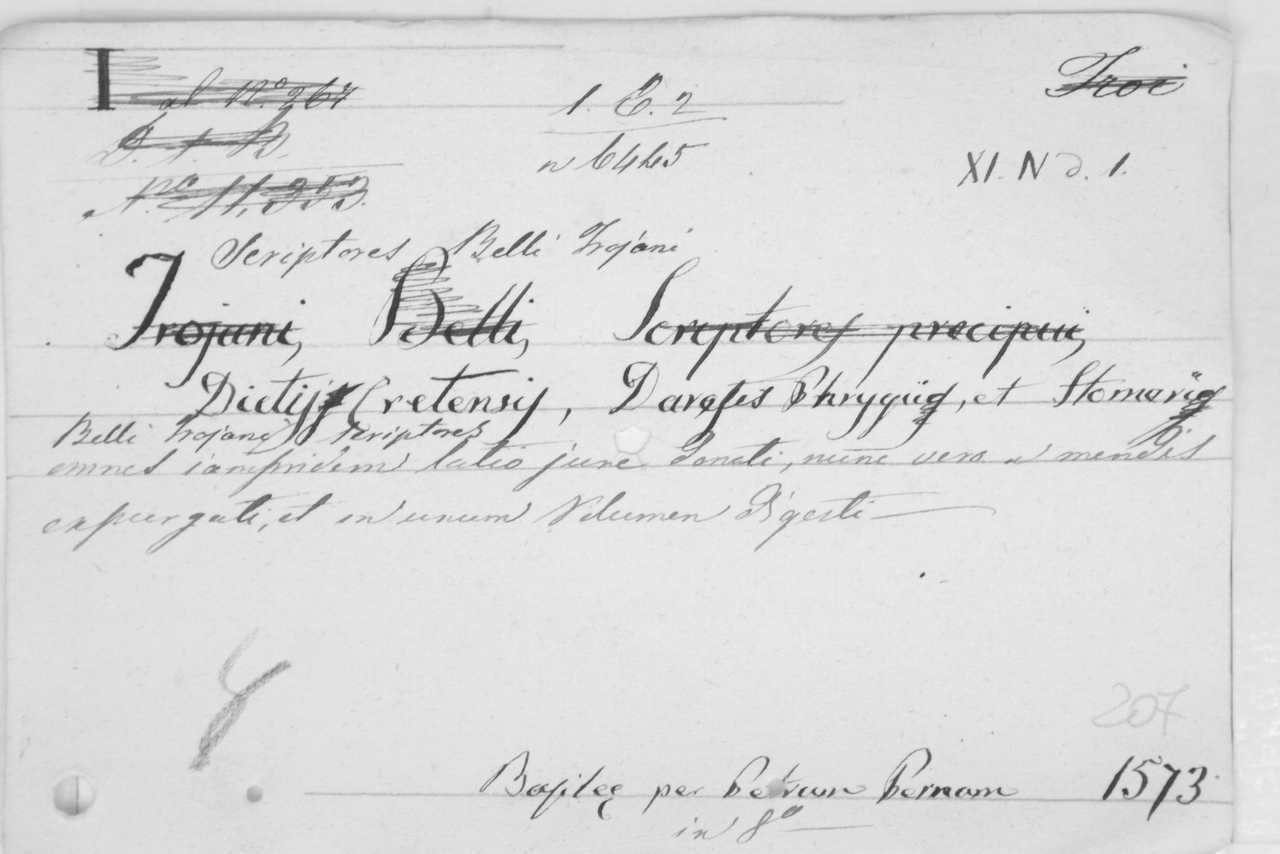 I al N.o 267
1. E. 2
Troi
I. A. B.
n 6445
XI. N ∂. 1.
N.o 11,353.
Scriptores Belli Trojani
Trojani, Belli, Scriptores precipui,
Dictijs Cretensis, Dares Phrygiis, et Homeriis
Belli Trojani Scriptores
omnes iampridem latio jure donati, nunc vero a mendis
expurgati, et in unum Volumen Digesti
207
Basileę per Petrum Pernam 1573
in 8o